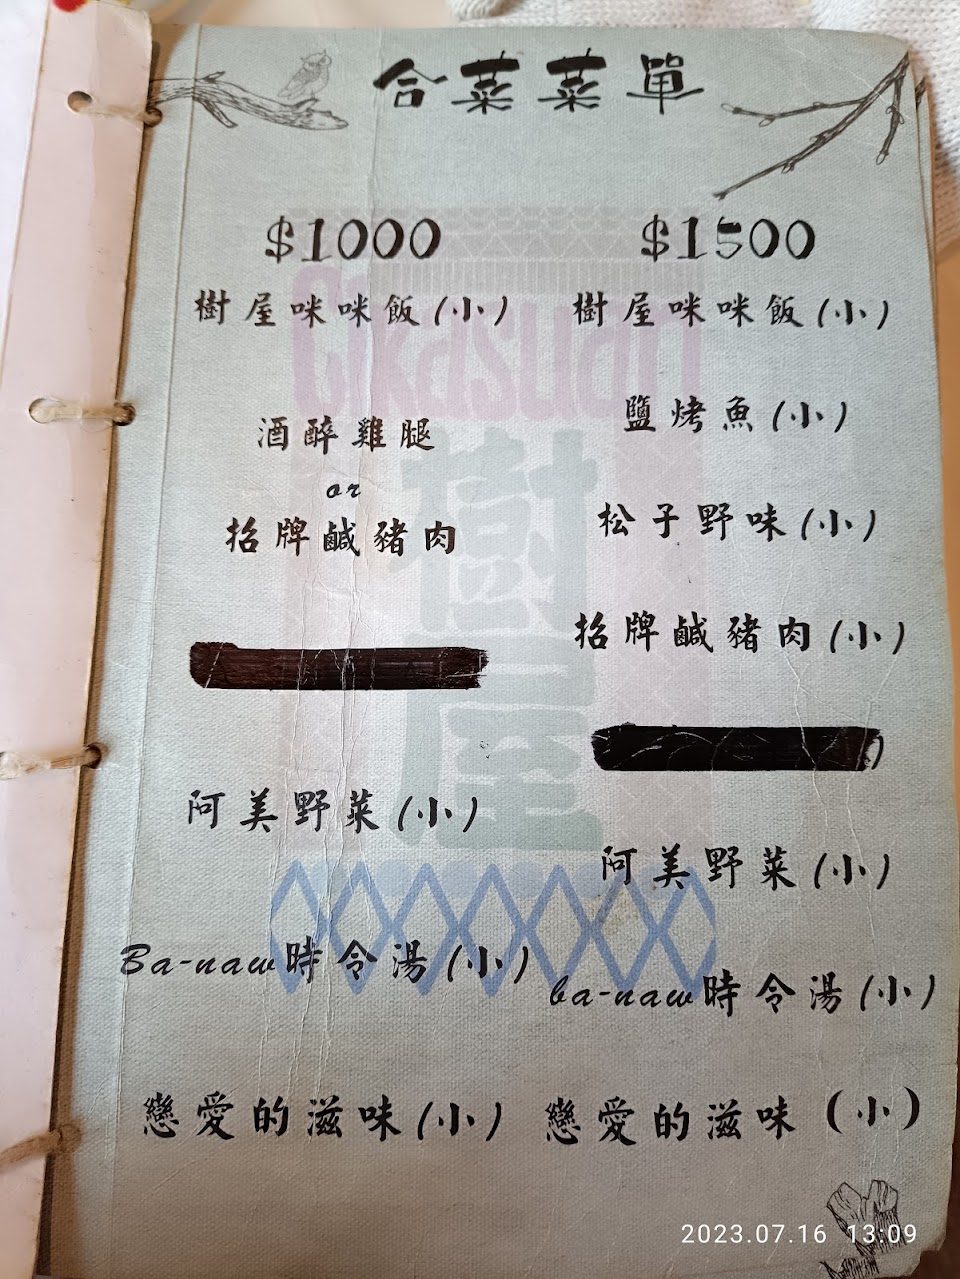 合菜菜單
$1000
樹屋咪咪飯(小)
酒醉雞腿
or
招牌鹹豬肉
阿美野菜(小)
Ba-naw時令湯(小)
戀愛的滋味(小)
$1500
樹屋咪咪飯(小)
鹽烤魚(小)
松子野味(小)
招牌鹹豬肉(小)
)
阿美野菜(小)
ba-naw時令湯(小)
戀愛的滋味(小)
Cikasuan
樹屋
2023.07.16 13:09